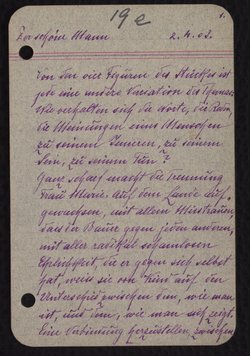 19e
1.
Der schöne Mann 2. 4. 03.
Von den vier Figuren des Stückes ist
jede eine andere Variation des Themas:
Wie verhalten sich die Worte, die Rede,
die Meinungen eines Menschen
zu seinem Inneren, zu seinem
Sein, zu seinem Tun?
Ganz scharf macht die Trennung
Frau Marie. Auf dem Lande auf-
gewachsen, mit allem Misstrauen,
das der Bauer gegen jeden anderen,
mit aller radikal schamlosen
Ehrlichkeit, die er gegen sich selbst
hat, weiss sie von Kind auf den
Unterschied zwischen dem, wie man
ist und dem, wie man sich zeigt.
Eine Verbindung herzustellen zwischen